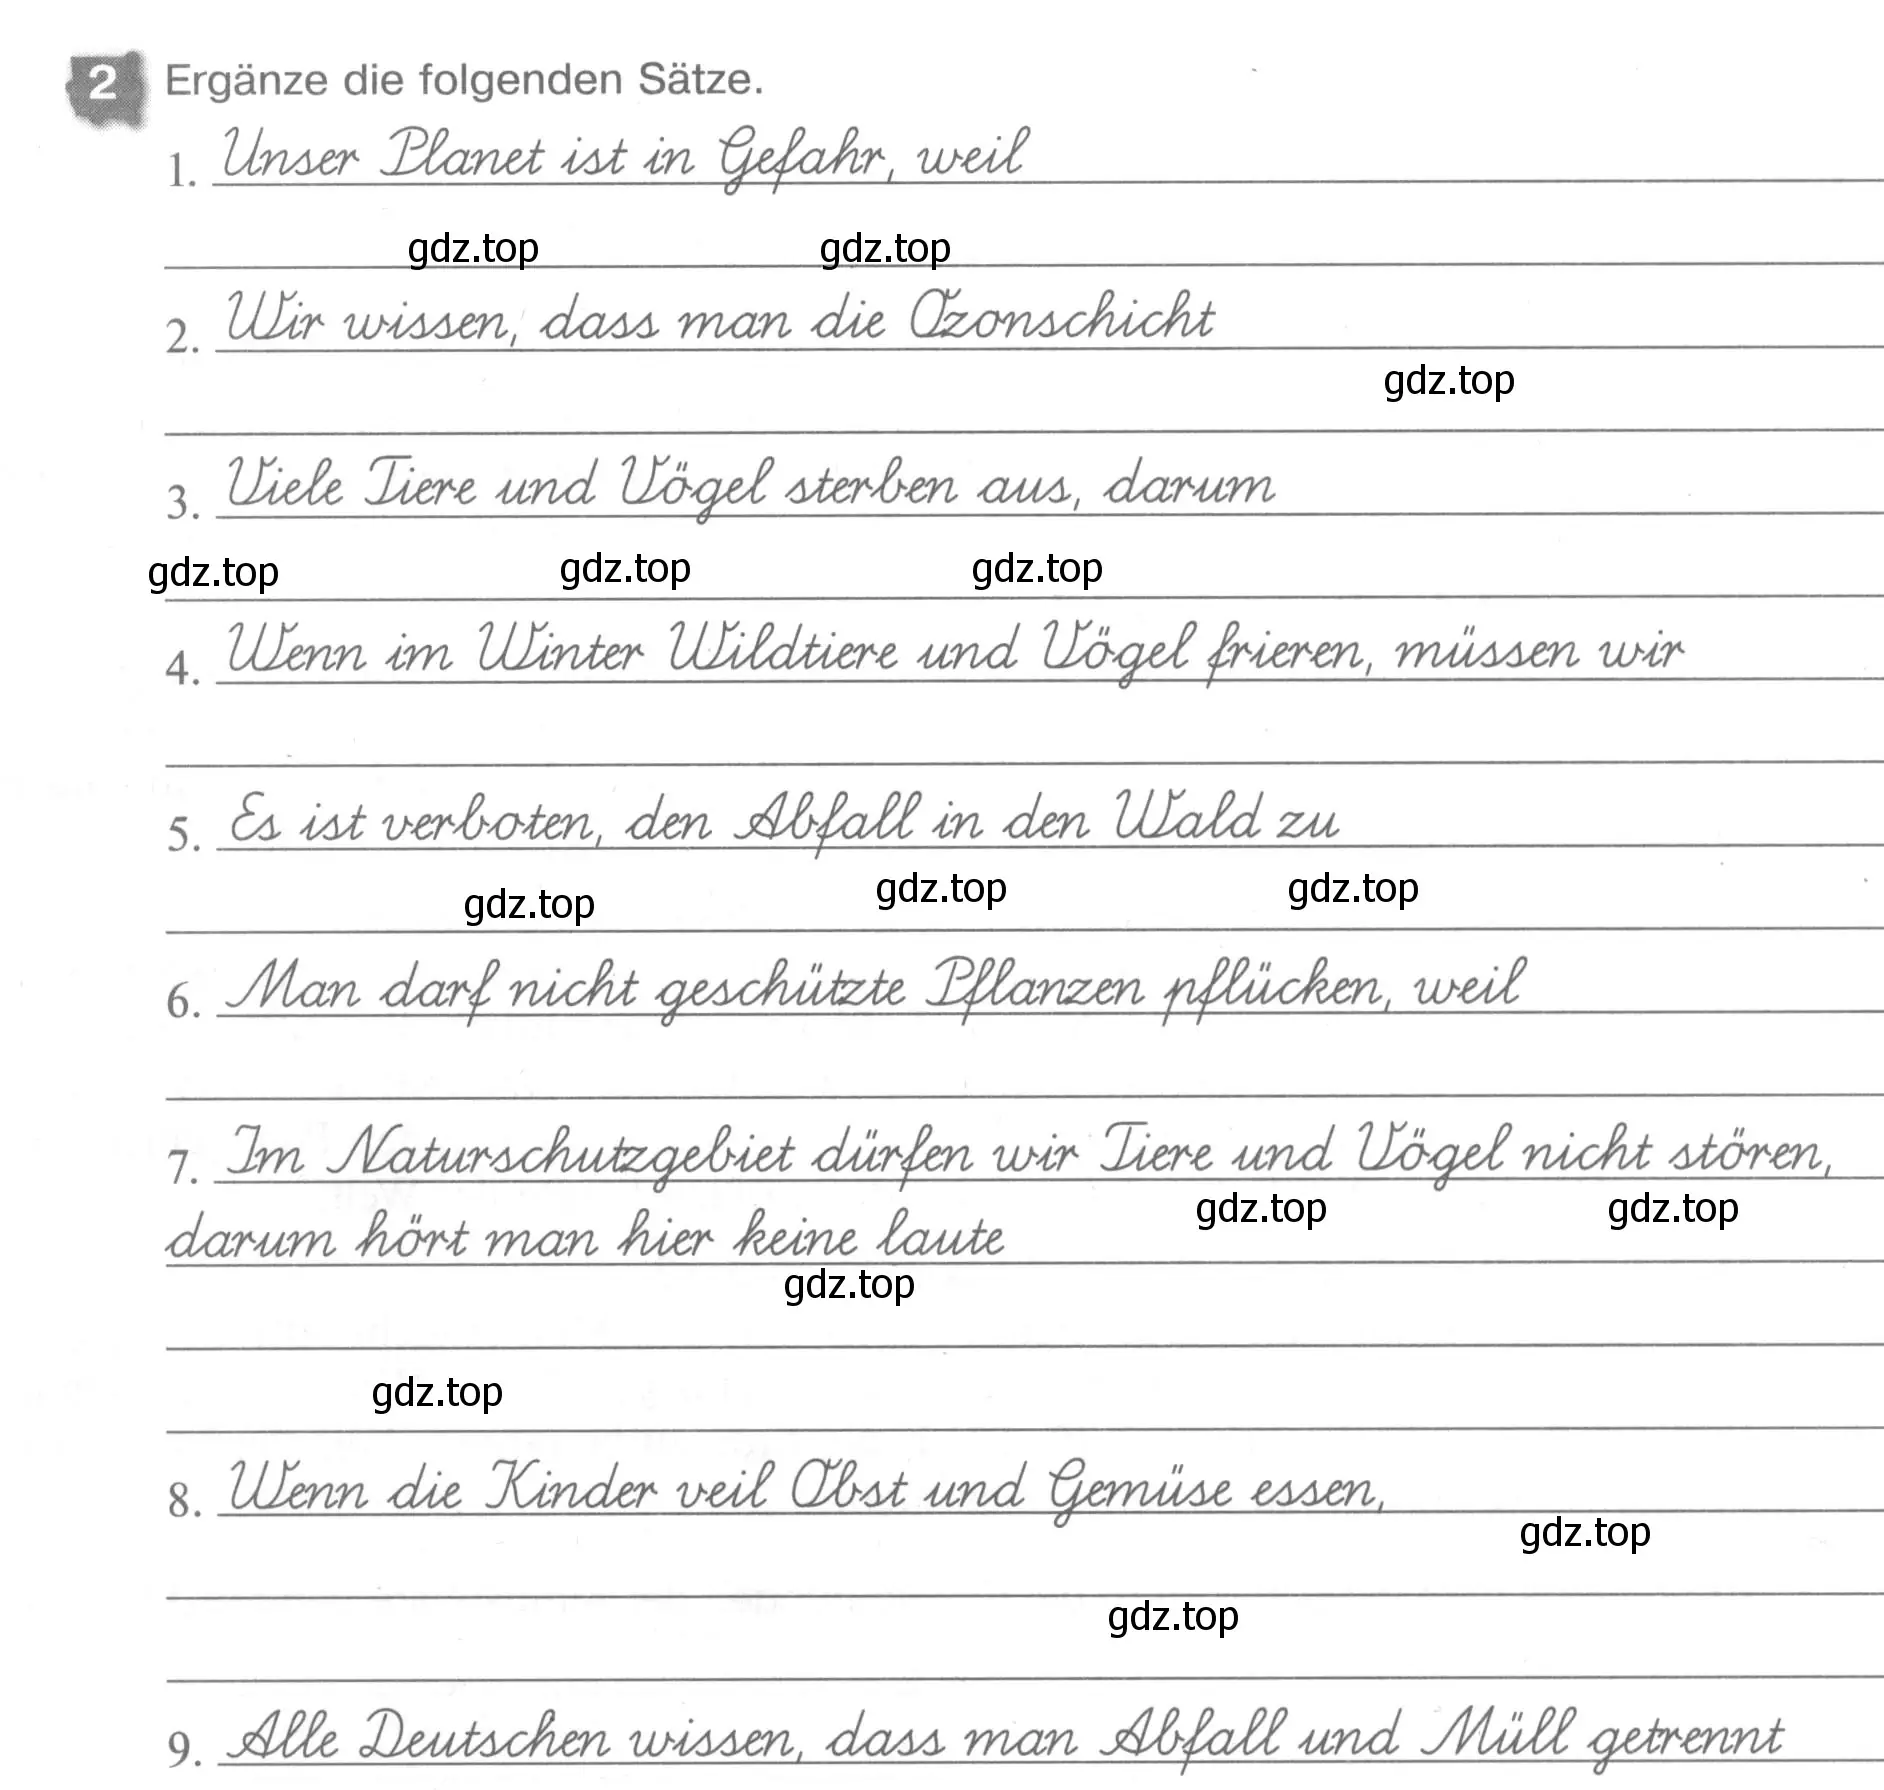 2 Ergänze die folgenden Sätze.
1. Unser Planet ist in Gefahr, weil
gdz.top gdz.top
2. Wir wissen, dass man die Ozonschicht
gdz.top
3. Viele Tiere und Vögel sterben aus, darum
gdz.top gdz.top gdz.top
4. Wenn im Winter Wildtiere und Vögel frieren, müssen wir
5. Es ist verboten, den Abfall in den Wald zu
gdz.top gdz.top gdz.top
6. Man darf nicht geschützte Pflanzen pflücken, weil
7. Im Naturschutzgebiet dürfen wir Tiere und Vögel nicht stören,
gdz.top gdz.top
darum hört man hier keine laute
gdz.top
gdz.top
8. Wenn die Kinder veil Obst und Gemüse essen,
gdz.top
gdz.top
9. Alle Deutschen wissen, dass man Abfall und Müll getrennt